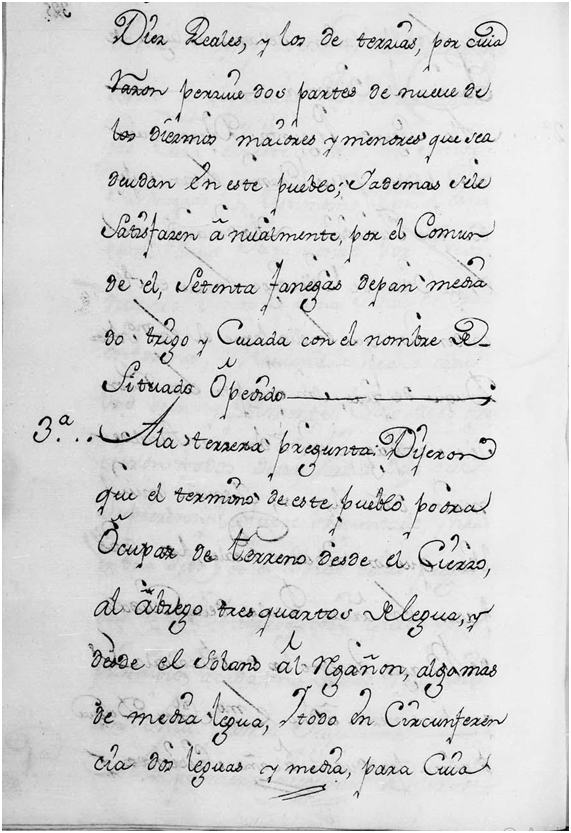 Diez Reales, y los de terzias, por cuia
Razon perzive dos partes de nueve de
los diezmos maiores y menores que sea
deudan en este pueblo; Y ademas sele
Satisfazen anualmente, por el Comun
de el, Setenta fanegas de pan media
do trigo y Cevada con el nombre de
Situado O pedido
3.ª Ala terzera pregunta: Dijeron
que el termino de este pueblo podra
Ocupar de terreno desde el Cierzo,
al abrego tres quartos de legua, y
desde el Solano al Regañon, algo mas
de media legua, Y todo en Circunferen
cia dos leguas y media, para Cuia